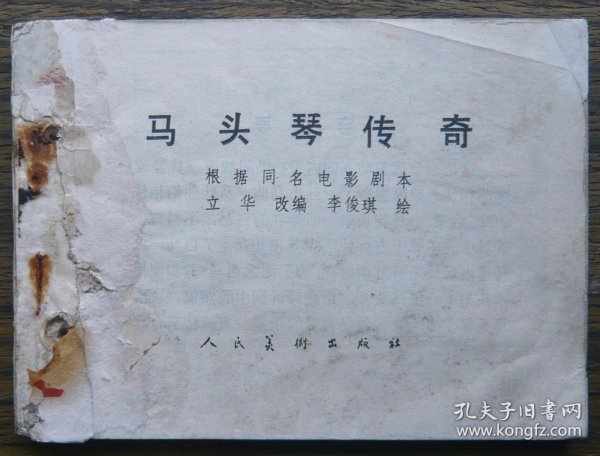 马头琴传奇
根据同名电影剧本
立华 改编 李俊琪 绘
人民美術出版社
孔夫子旧书网
www.kongfz.com